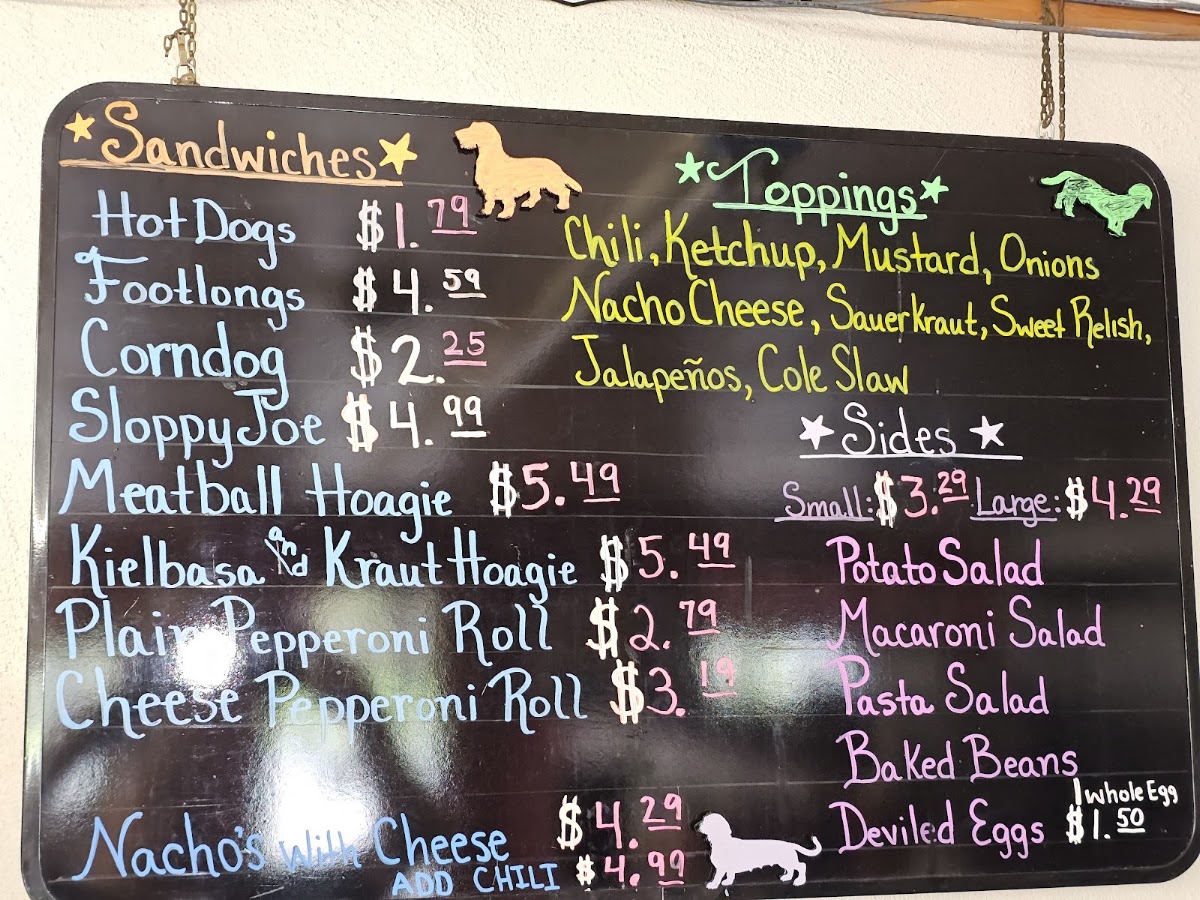 Sandwiches
Hot Dogs $1.79
Footlongs $4.59
Corndog $2.25
Sloppy Joe $4.99
Meatball Hoagie $5.49
Kielbasa and Kraut Hoagie $5.49
Plain Pepperoni Roll $2.79
Cheese Pepperoni Roll $3.19
Nacho's with Cheese $4.29
ADD CHILI $4.99
Toppings
Chili, Ketchup, Mustard, Onions
Nacho Cheese, Sauerkraut, Sweet Relish,
Jalapeños, Cole Slaw
Sides
Small: $3.29 Large: $4.29
Potato Salad
Macaroni Salad
Pasta Salad
Baked Beans
Deviled Eggs 1 whole Egg $1.50